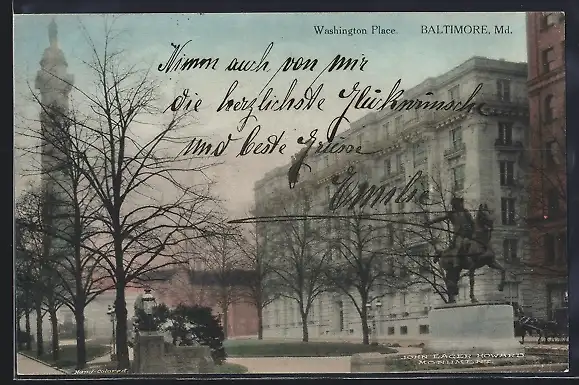 Washington Place. BALTIMORE, Md.
Nimm auch von mir
die herzlichste Glückwünsche
und beste Grüsse
Emilie
JOHN EAGER HOWARD
MONUMENT.
Hand-Colored.